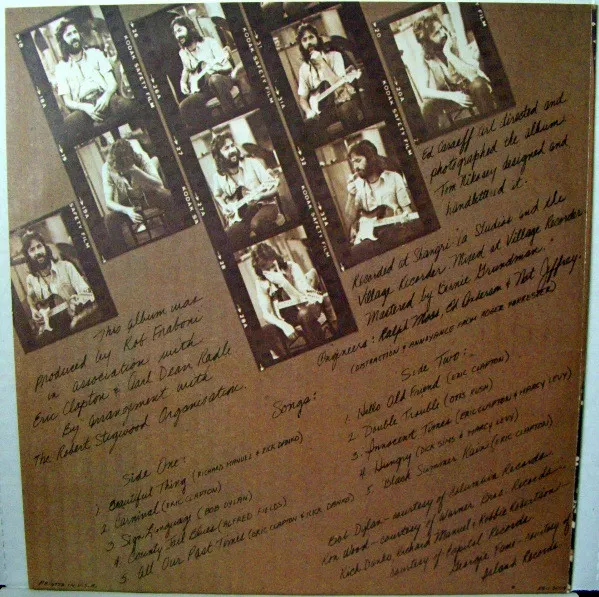 KODAK SAFETY FILM
KODAK SAFETY FILM
KODAK SAFETY FILM
KODAK SAFETY FILM
KODAK SAFETY FILM
20
20A
Ed Caraeff art directed and
photographed the album
Tom Nikosey designed and
handlettered it.
Recorded at Shangri-la Studios and the
Village Recorder. Mixed at Village Recorder
Mastered by Bernie Grundman.
Engineers: Ralph Moss, Ed Anderson & Nat Jeffrey.
This album was
Produced by Rob Fraboni
in association with
Eric Clapton & Carl Dean Radle
By arrangement with
The Robert Stigwood Organisation.
Songs:
Side One:
1. Beautiful Thing (Richard Manuel & Rick Danko)
2. Carnival (Eric Clapton)
3. Sign Language (Bob Dylan)
4. County Jail Blues (Alfred Fields)
5. All Our Past Times (Eric Clapton & Rick Danko)
Side Two:
1. Hello Old Friend (Eric Clapton)
2. Double Trouble (Otis Rush)
3. Innocent Times (Eric Clapton & Marcy Levy)
4. Hungry (Dick Sims & Marcy Levy)
5. Black Summer Rain (Eric Clapton)
Bob Dylan-courtesy of Columbia Records
Ron Wood-courtesy of Warner Bros. Records
Rick Danko, Richard Manuel & Robbie Robertson
courtesy of Capitol Records
Georgie Fame-courtesy of
Island Records